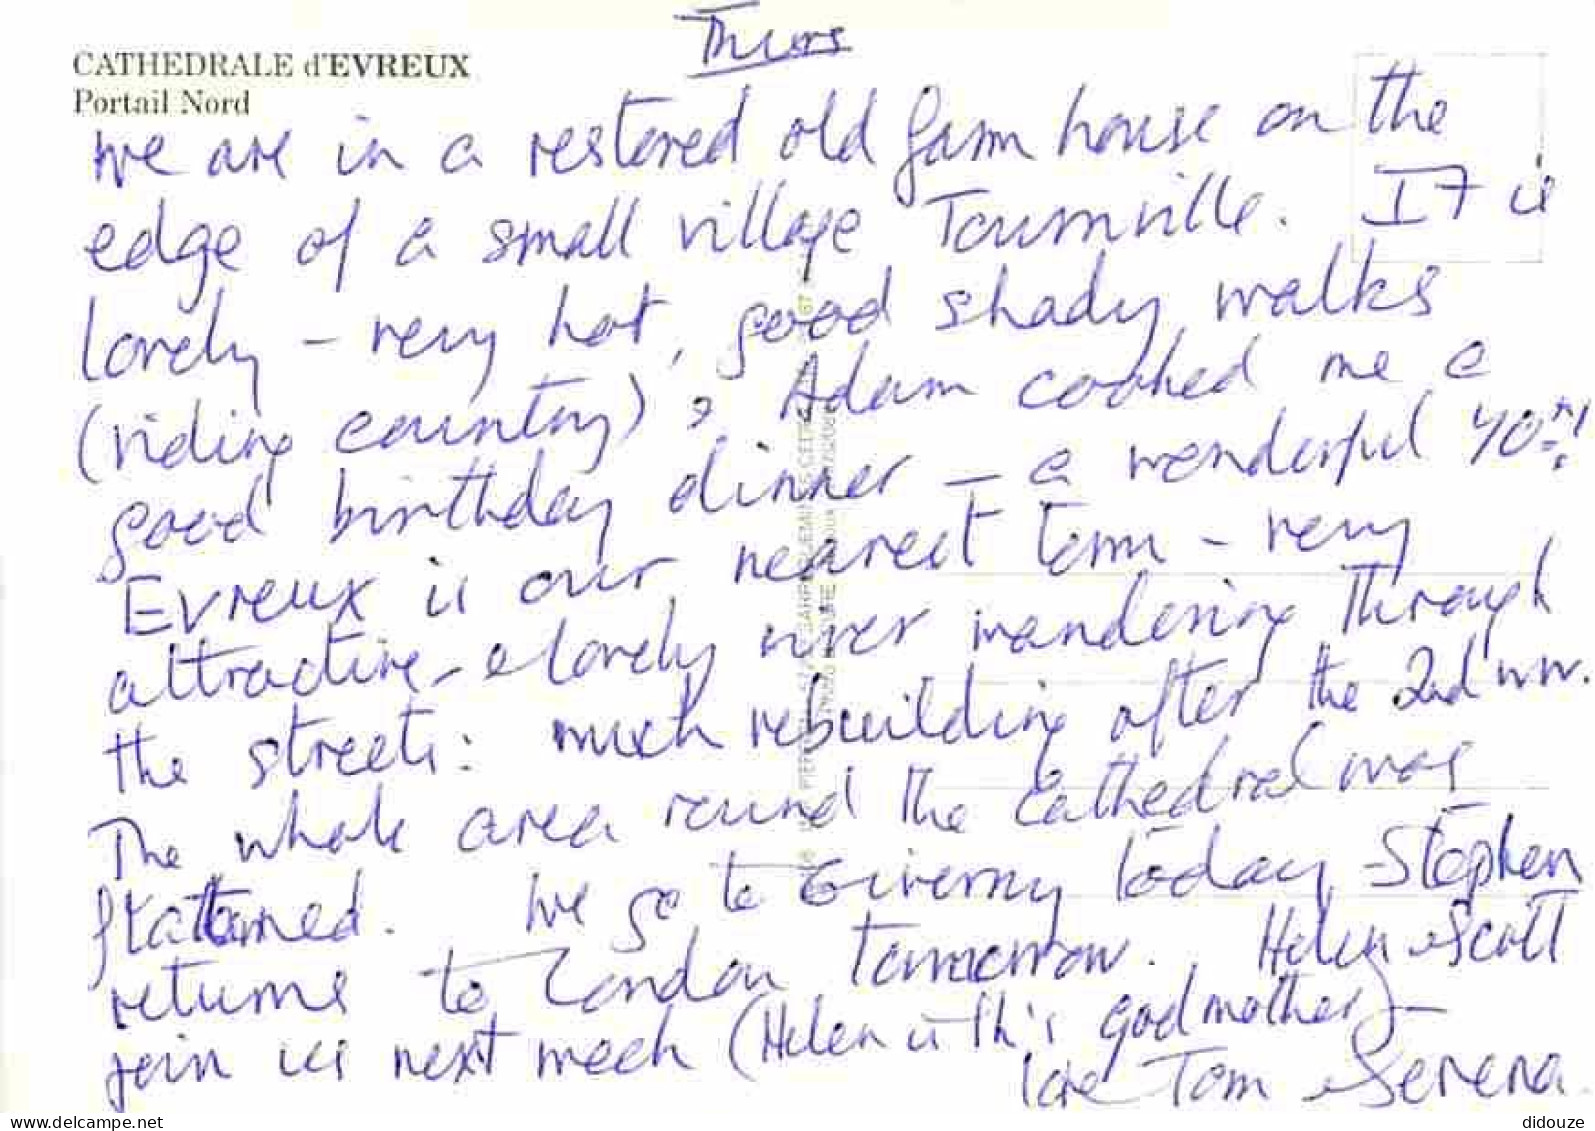 Thurs
CATHEDRALE d'EVREUX
Portail Nord
We are in a restored old farm house on the
edge of a small village Tournville. IT is
lovely – very hot, good shady walks
(riding country), Adam cooked me a
good birthday dinner – a wonderful 70th!
Evreux is our nearest town – very
attractive – a lovely river wandering through
the streets: much rebuilding after the 2nd WW.
The whole area round the Cathedral was
flattened. We go to Giverny today, Stephen
returns to London tomorrow. Helen & Scott
join us next week (Helen is Th's godmother) –
love Tom & Serena.
delcampe.net
didouze